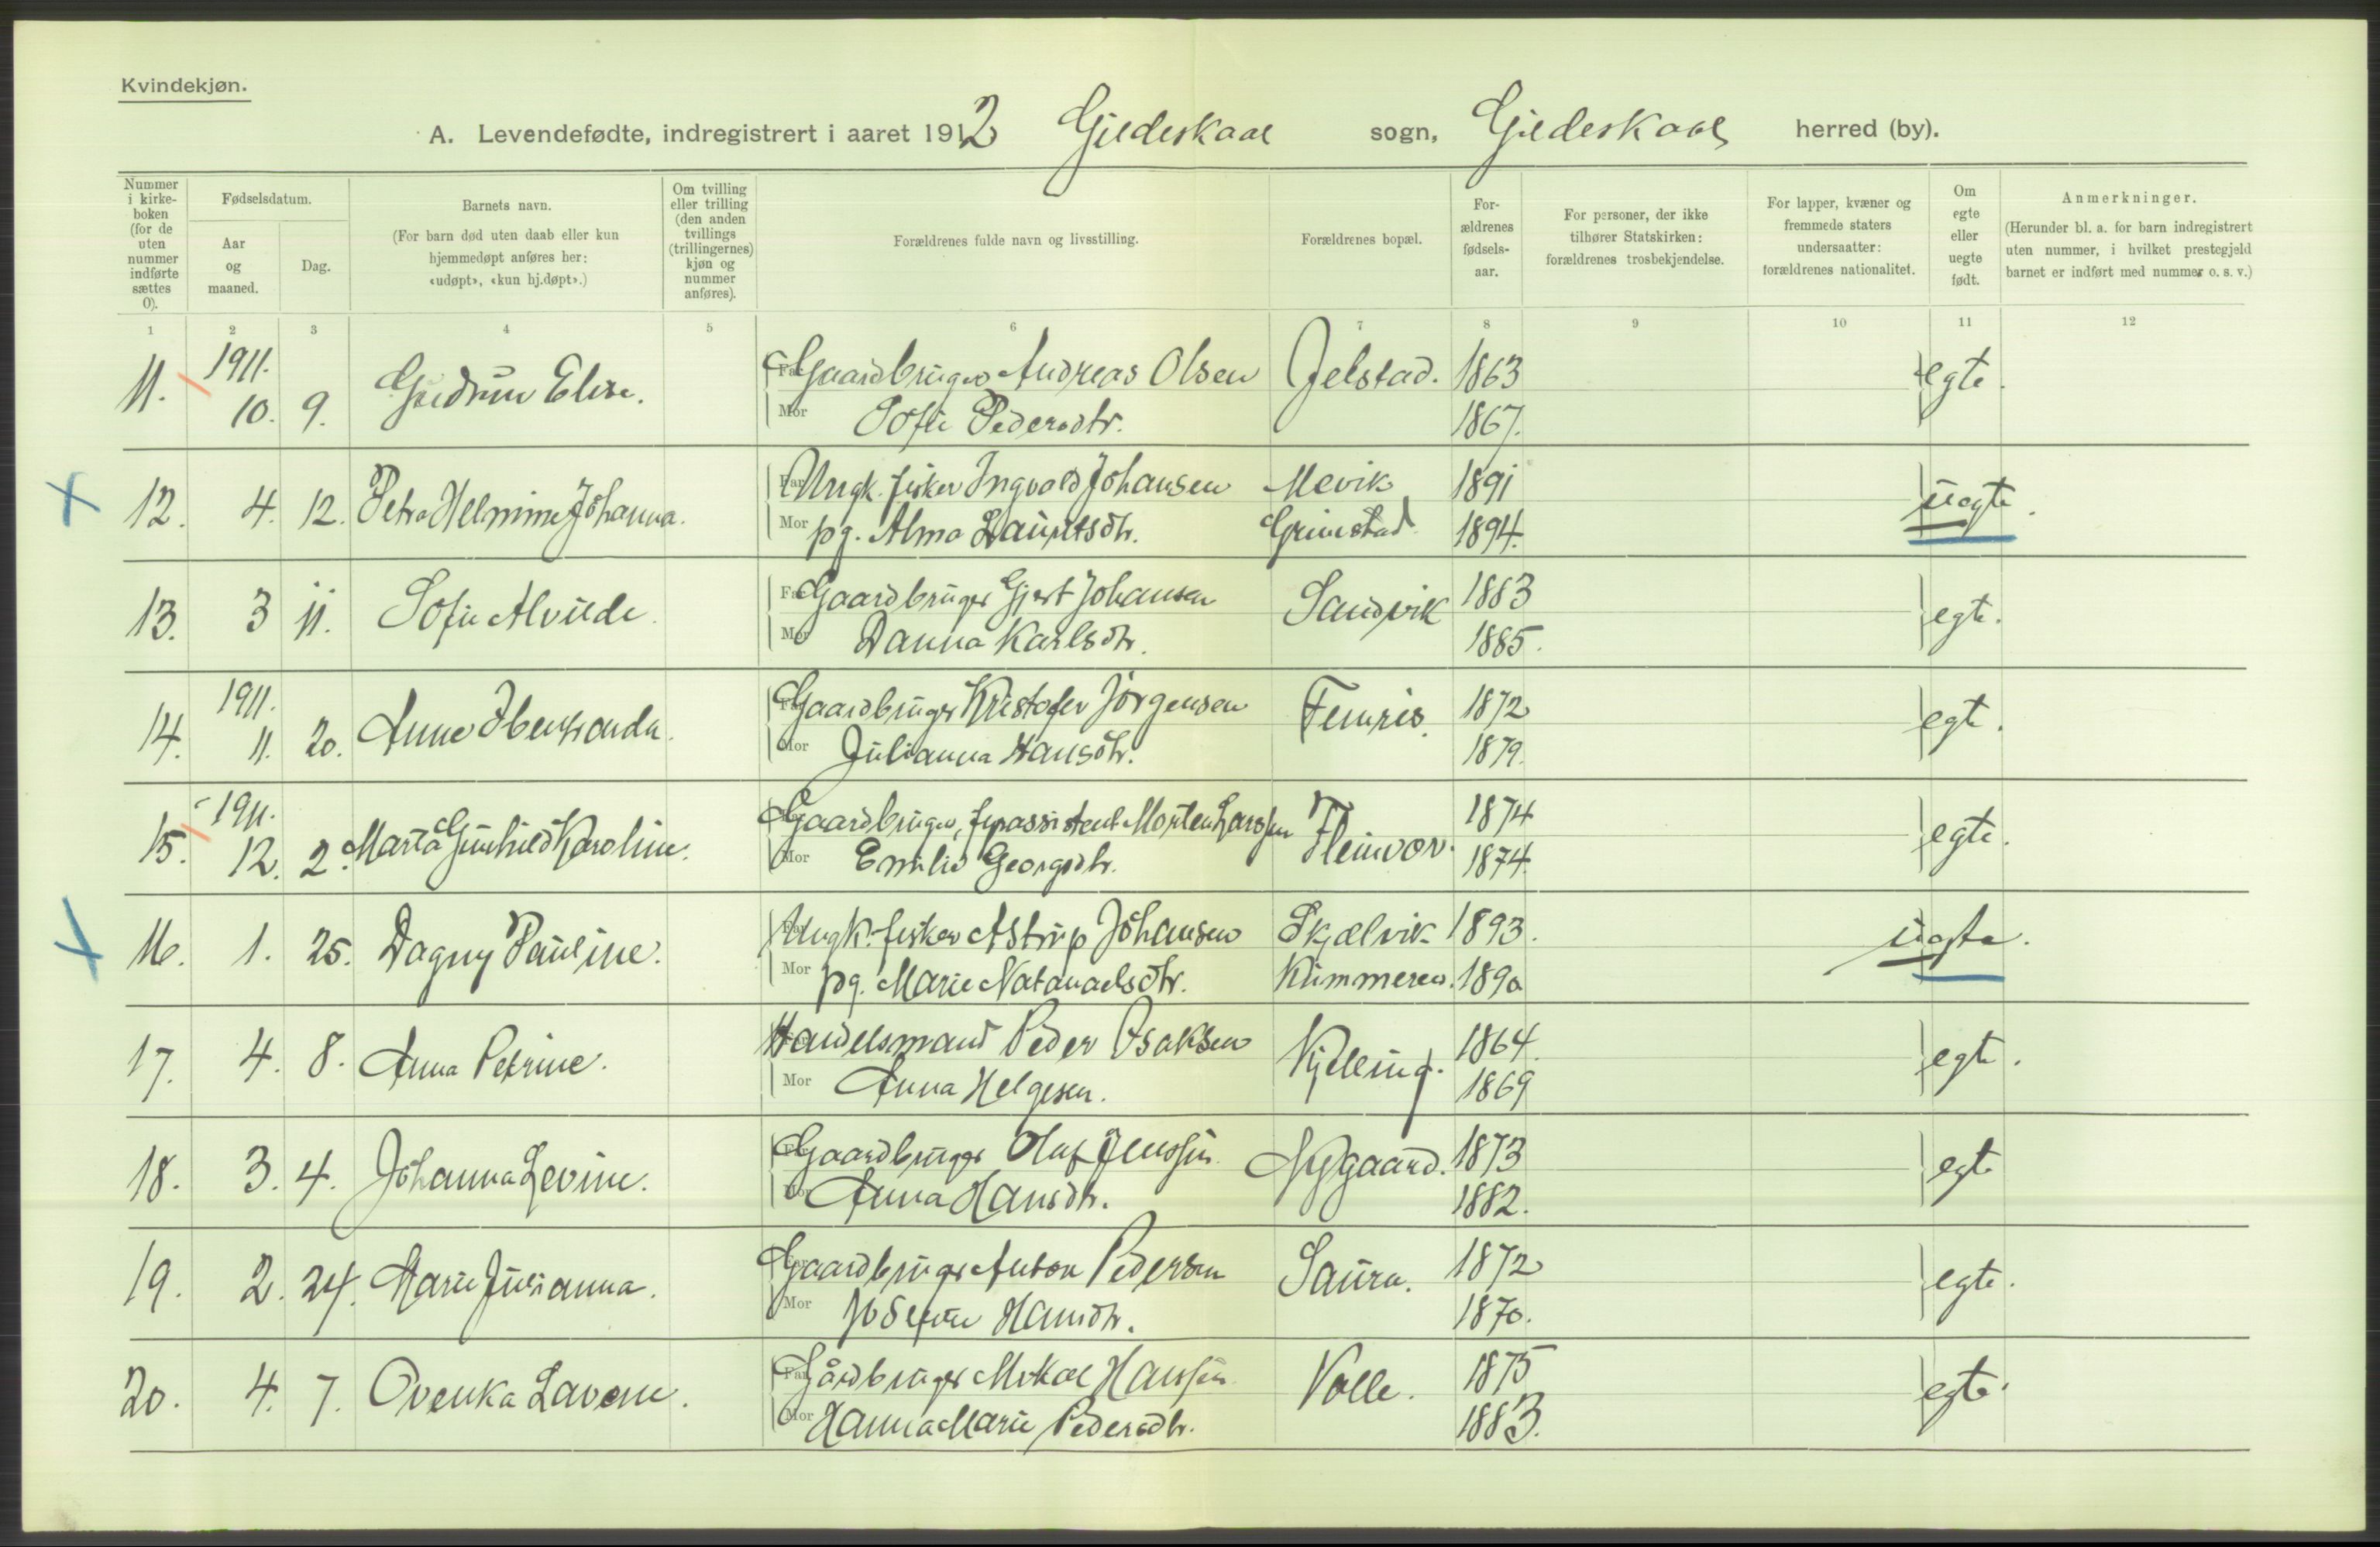 Kvindekjøn.
A. Levendefødte, indregistrert i aaret 1912 Gildeskaal sogn, Gildeskaal herred (by).
Nummer i kirkeboken (for de uten nummer indførte sættes 0).
Fødselsdatum.
Aar og maaned.
Dag.
Barnets navn.
(For barn død uten daab eller kun hjemmedøpt anføres her: «udøpt», «kun hj.døpt».)
Om tvilling eller trilling (den anden tvillings (trillingernes) kjøn og nummer anføres).
Forældrenes fulde navn og livsstilling.
Forældrenes bopæl.
Forældrenes fødselsaar.
For personer, der ikke tilhører Statskirken: forældrenes trosbekjendelse.
For lapper, kvæner og fremmede staters undersaatter: forældrenes nationalitet.
Om egte eller uegte født.
Anmerkninger.
(Herunder bl. a. for barn indregistrert uten nummer, i hvilket prestegjeld barnet er indført med nummer o. s. v.)
1 2 3 4 5 6 7 8 9 10 11 12
11. 1911. 10. 9. Gudrun Elise. Far Gaardbruger Andreas Olsen Jelstad. 1863 egte.
Mor Sofie Pedersdtr. 1867.
12. 4. 12. Petra Helmine Johanna. Far Ungk. fisker Ingvald Johansen Mevik 1891 uegte.
Mor pg. Alma Lauritsdtr. Grimstad 1894.
13. 3 11. Sofie Alvilde. Far Gaardbruger Gjert Johansen Sandvik 1883 egte.
Mor Danna Karlsdtr. 1885.
14. 1911. 11. 20. Anne. Far Gaardbruger Kristofer Jörgensen Femris. 1872 egte.
Mor Julianna Hansdtr. 1879.
15. 1911. 12. 2. Marta Gunhild Karoline. Far Gaardbruger, Morten Larssen Fleinvær. 1874 egte.
Mor Emilie Georgsdtr. 1874.
16. 1. 25. Dagny Pauline. Far Ungk. fisker Astrup Johansen Skjælvik 1893. uegte.
Mor pg. Marie Natanaelsdtr. Kummeren. 1890
17. 4. 8. Anna Petrine. Far Handelsmand Peder Isaksen Kjelling. 1864. egte.
Mor Anna Helgesen. 1869
18. 3. 4. Johanna Levine. Far Gaardbruger Olaf Jenssen Nygaard. 1873 egte
Mor Anna Hansdtr. 1882.
19. 2. 24. Marie Julianna. Far Gaardbruger Anton Pedersen Saura. 1872 egte.
Mor Josefine Hansdtr. 1870.
20. 4. 7. Ovenka Lavene. Far Gårdbruger Mikal Hanssen Volle. 1875 egte.
Mor Hanna Marie Pedersdtr. 1883.